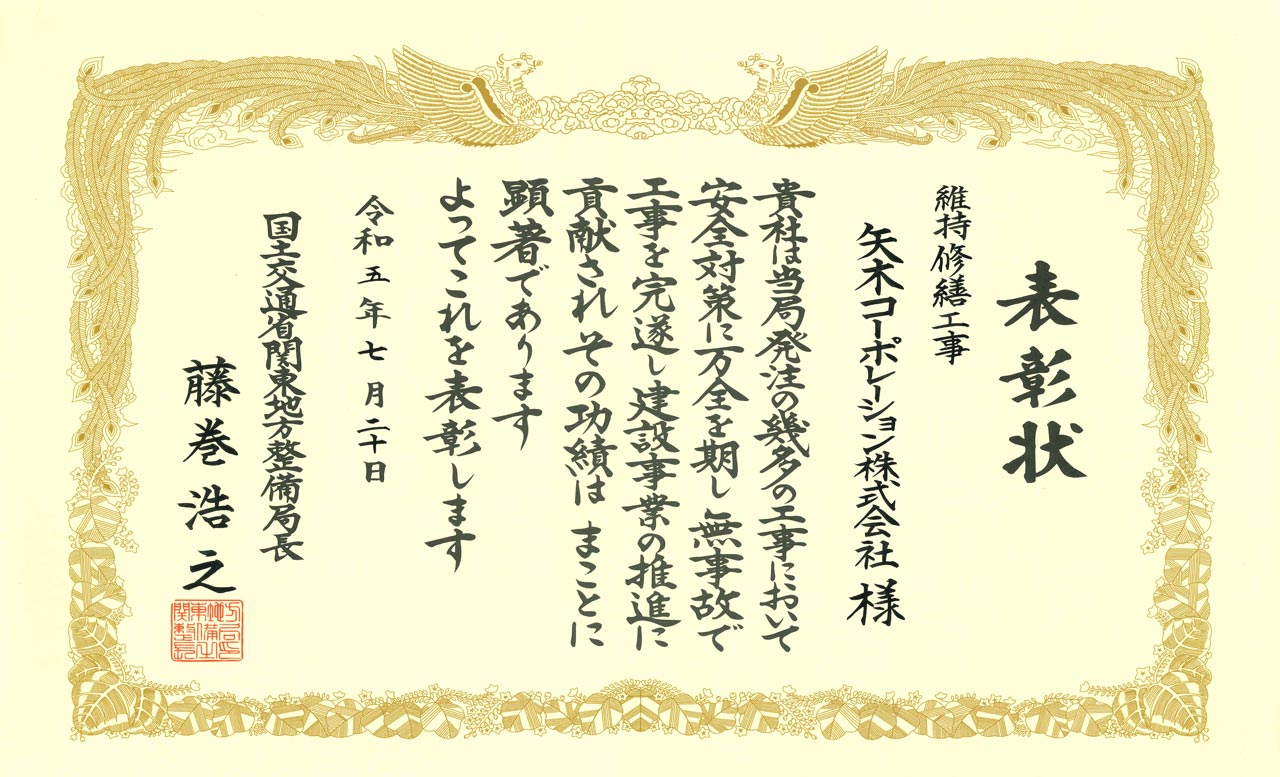 表彰状
維持修繕工事
矢木コーポレーション株式会社 様
貴社は当局発注の幾多の工事において
安全対策に万全を期し無事故で
工事を完遂し建設事業の推進に
貢献されその功績はまことに
顕著であります
よってこれを表彰します
令和五年七月二十日
国土交通省関東地方整備局長
藤巻浩之